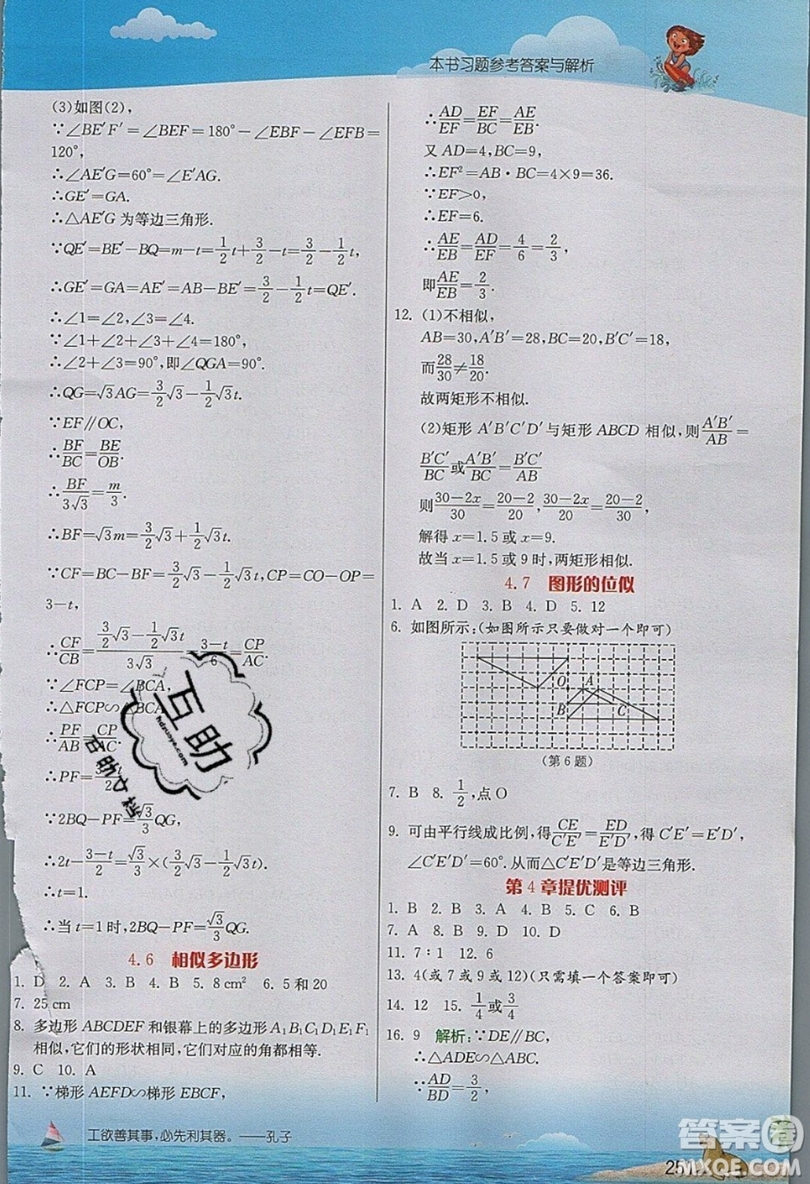 本书习题参考答案与解析
(3)如图(2),
∵∠BE′F′=∠BEF=180°-∠EBF-∠EFB=
120°,
∴∠AE′G=60°=∠E′AG.
∴GE′=GA.
∴△AE′G 为等边三角形.
∵QE′=BE′-BQ=m-t=1/2t+3/2-t=3/2-1/2t,
∴GE′=GA=AE′=AB-BE′=3/2-1/2t=QE′.
∴∠1=∠2,∠3=∠4.
∵∠1+∠2+∠3+∠4=180°,
∴∠2+∠3=90°,即∠QGA=90°.
∴QG=√3AG=3/2√3-1/2√3t.
∵EF∥OC,
∴BF/BC=BE/OB.
∴BF/3√3=m/3.
∴BF=√3m=3/2√3+1/2√3t.
∵CF=BC-BF=3/2√3-1/2√3t,CP=CO-OP=
3-t,
∴CF/CB=(3/2√3-1/2√3t)/3√3=(3-t)/6=CP/AC.
∵∠FCP=∠BCA,
∴△FCP∽△BCA.
∴PF/AB=CP/AC.
∴PF=
∵2BQ-PF=√3/3QG,
∴2t-(3-t)/2=√3/3×(3/2√3-1/2√3t).
∴t=1.
∴当 t=1 时,2BQ-PF=√3/3QG.
4.6 相似多边形
1. D 2. A 3. B 4. B 5. 8 cm² 6. 5 和 20
7. 25 cm
8. 多边形 ABCDEF 和银幕上的多边形 A₁B₁C₁D₁E₁F₁
相似,它们的形状相同,它们对应的角都相等.
9. C 10. A
11. ∵梯形 AEFD∽梯形 EBCF,
∴AD/EF=EF/BC=AE/EB.
又 AD=4,BC=9,
∴EF²=AD·BC=4×9=36.
∵EF>0,
∴EF=6.
∴AE/EB=AD/EF=4/6=2/3,
即AE/EB=2/3.
12. (1)不相似,
AB=30,A′B′=28,BC=20,B′C′=18,
而28/30≠18/20.
故两矩形不相似.
(2)矩形 A′B′C′D′与矩形 ABCD 相似,则A′B′/AB=
B′C′/BC或A′B′/BC=B′C′/AB
则(30-2x)/30=(20-2)/20,(30-2x)/20=(20-2)/30,
解得 x=1.5 或 9,
故当 x=1.5 或 9 时,两矩形相似.
4.7 图形的位似
1. A 2. D 3. B 4. D 5. 12
6. 如图所示:(如图所示只要做对一个即可)
O A
B C
(第 6 题)
7. B 8. 1/2,点O
9. 可由平行线成比例,得CE/C′E′=ED/E′D′,得 C′E′=E′D′,
∠C′E′D′=60°.从而△C′D′E′是等边三角形.
第 4 章提优测评
1. B 2. D 3. B 4. D 5. C 6. B
7. A 8. D 9. D 10. D
11. 7:1 12. 6
13. 4(或 7 或 9 或 12)(只需填一个答案即可)
14. 12 15. 1/4或3/4
16. 9 解析:∵DE∥BC,
∴△ADE∽△ABC.
∴AD/AB=DE/BC,
工欲善其事,必先利其器。——孔子
25
互助
hdzuoye.com
互助文档
答案圈
MXQE.COM